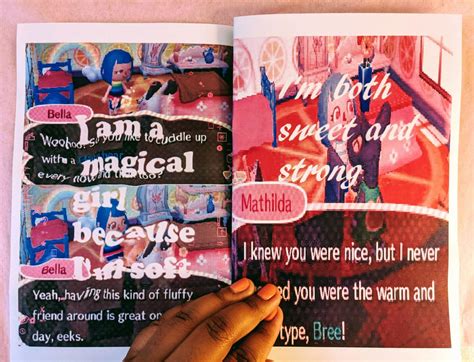 Bella
I am a
magical
girl
because
I'm soft
you like to cuddle up
with a
every now and
too?
Bella
Yeah, having this kind of fluffy
friend around is great on
day, eeks.
I'm both
sweet and
strong
Mathilda
I knew you were nice, but I never
you were the warm and
type, Bree!